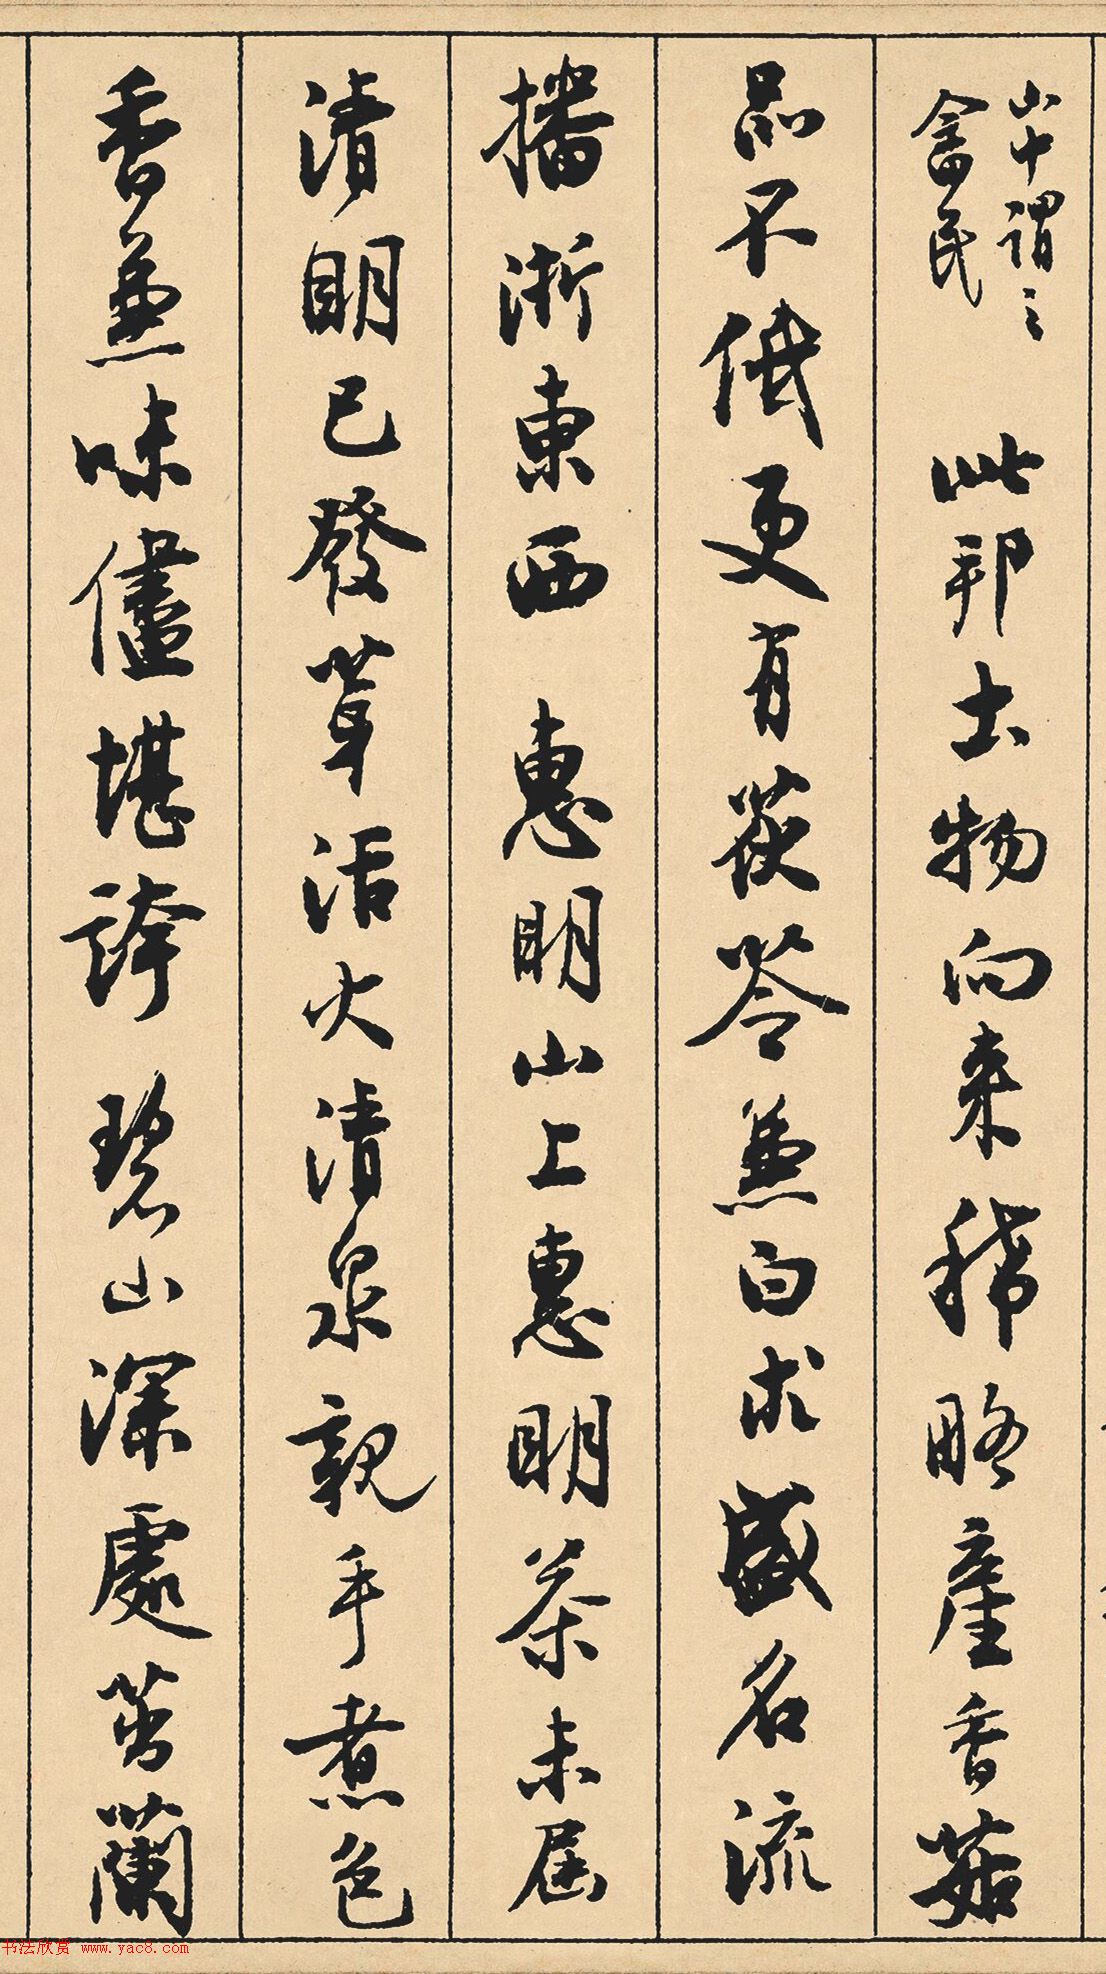 山中謂之
畬民
此邦土物向来稀略產香菇
品不低更有茯苓兼白求盛名流
播浙東西 惠明山上惠明茶未届
清明已發芽活火清泉親手煮色
香兼味儘堪誇 碧山深處苦蘭
书法欣赏 www.yac8.com